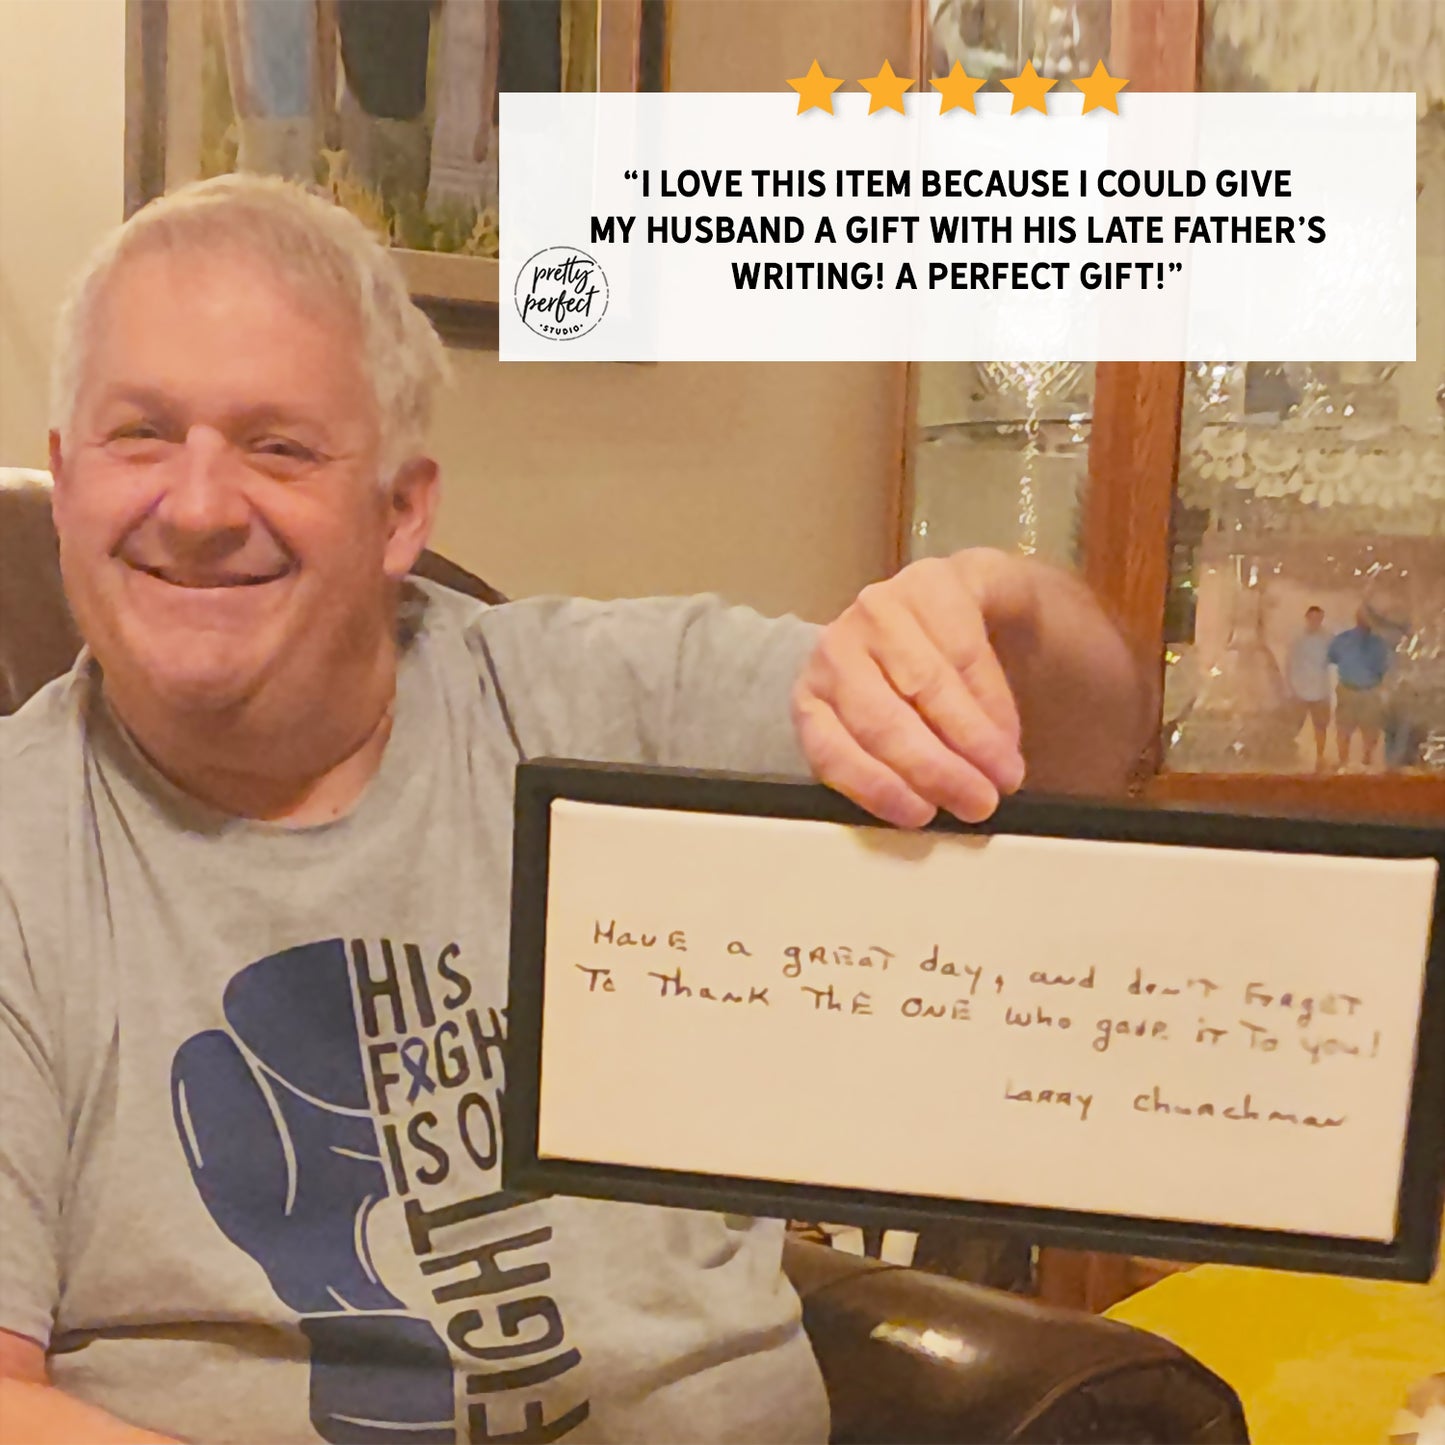 “I LOVE THIS ITEM BECAUSE I COULD GIVE
MY HUSBAND A GIFT WITH HIS LATE FATHER’S
WRITING! A PERFECT GIFT!”
pretty
perfect
•STUDIO•
HAVE a gREAT day, and don't FORgET
To ThANK ThE ONE who gave iT To you!
LARRY ChuRchmAN
HIS
FIGH
IS O
FIGHT
FIGHT